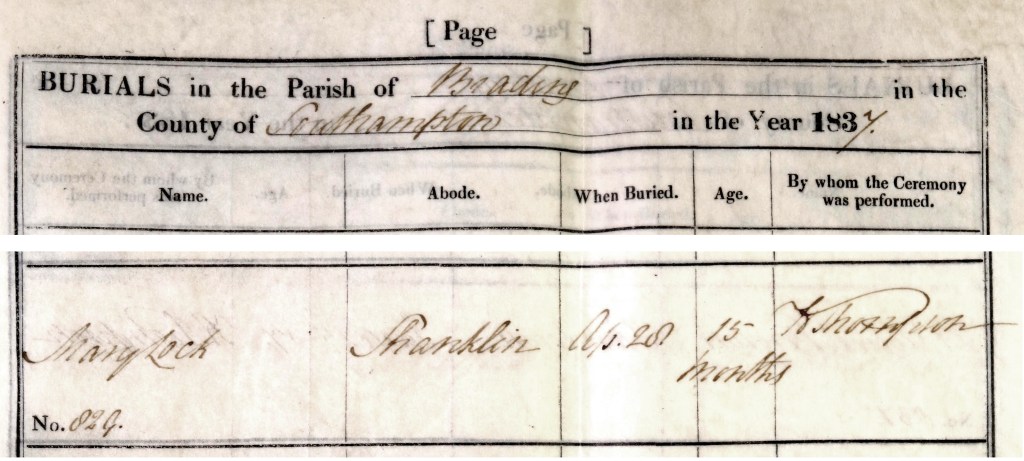 [ Page ]
BURIALS in the Parish of Brading in the
County of Southampton in the Year 1837.
Name. Abode. When Buried. Age. By whom the Ceremony
was performed.
Mary Lock Shanklin Ap. 28 15
months
No. 829.